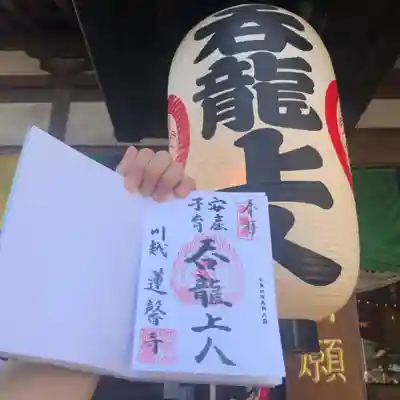 呑龍上人
奉拝
安産
子育
呑龍上人
川越 蓮馨寺
願